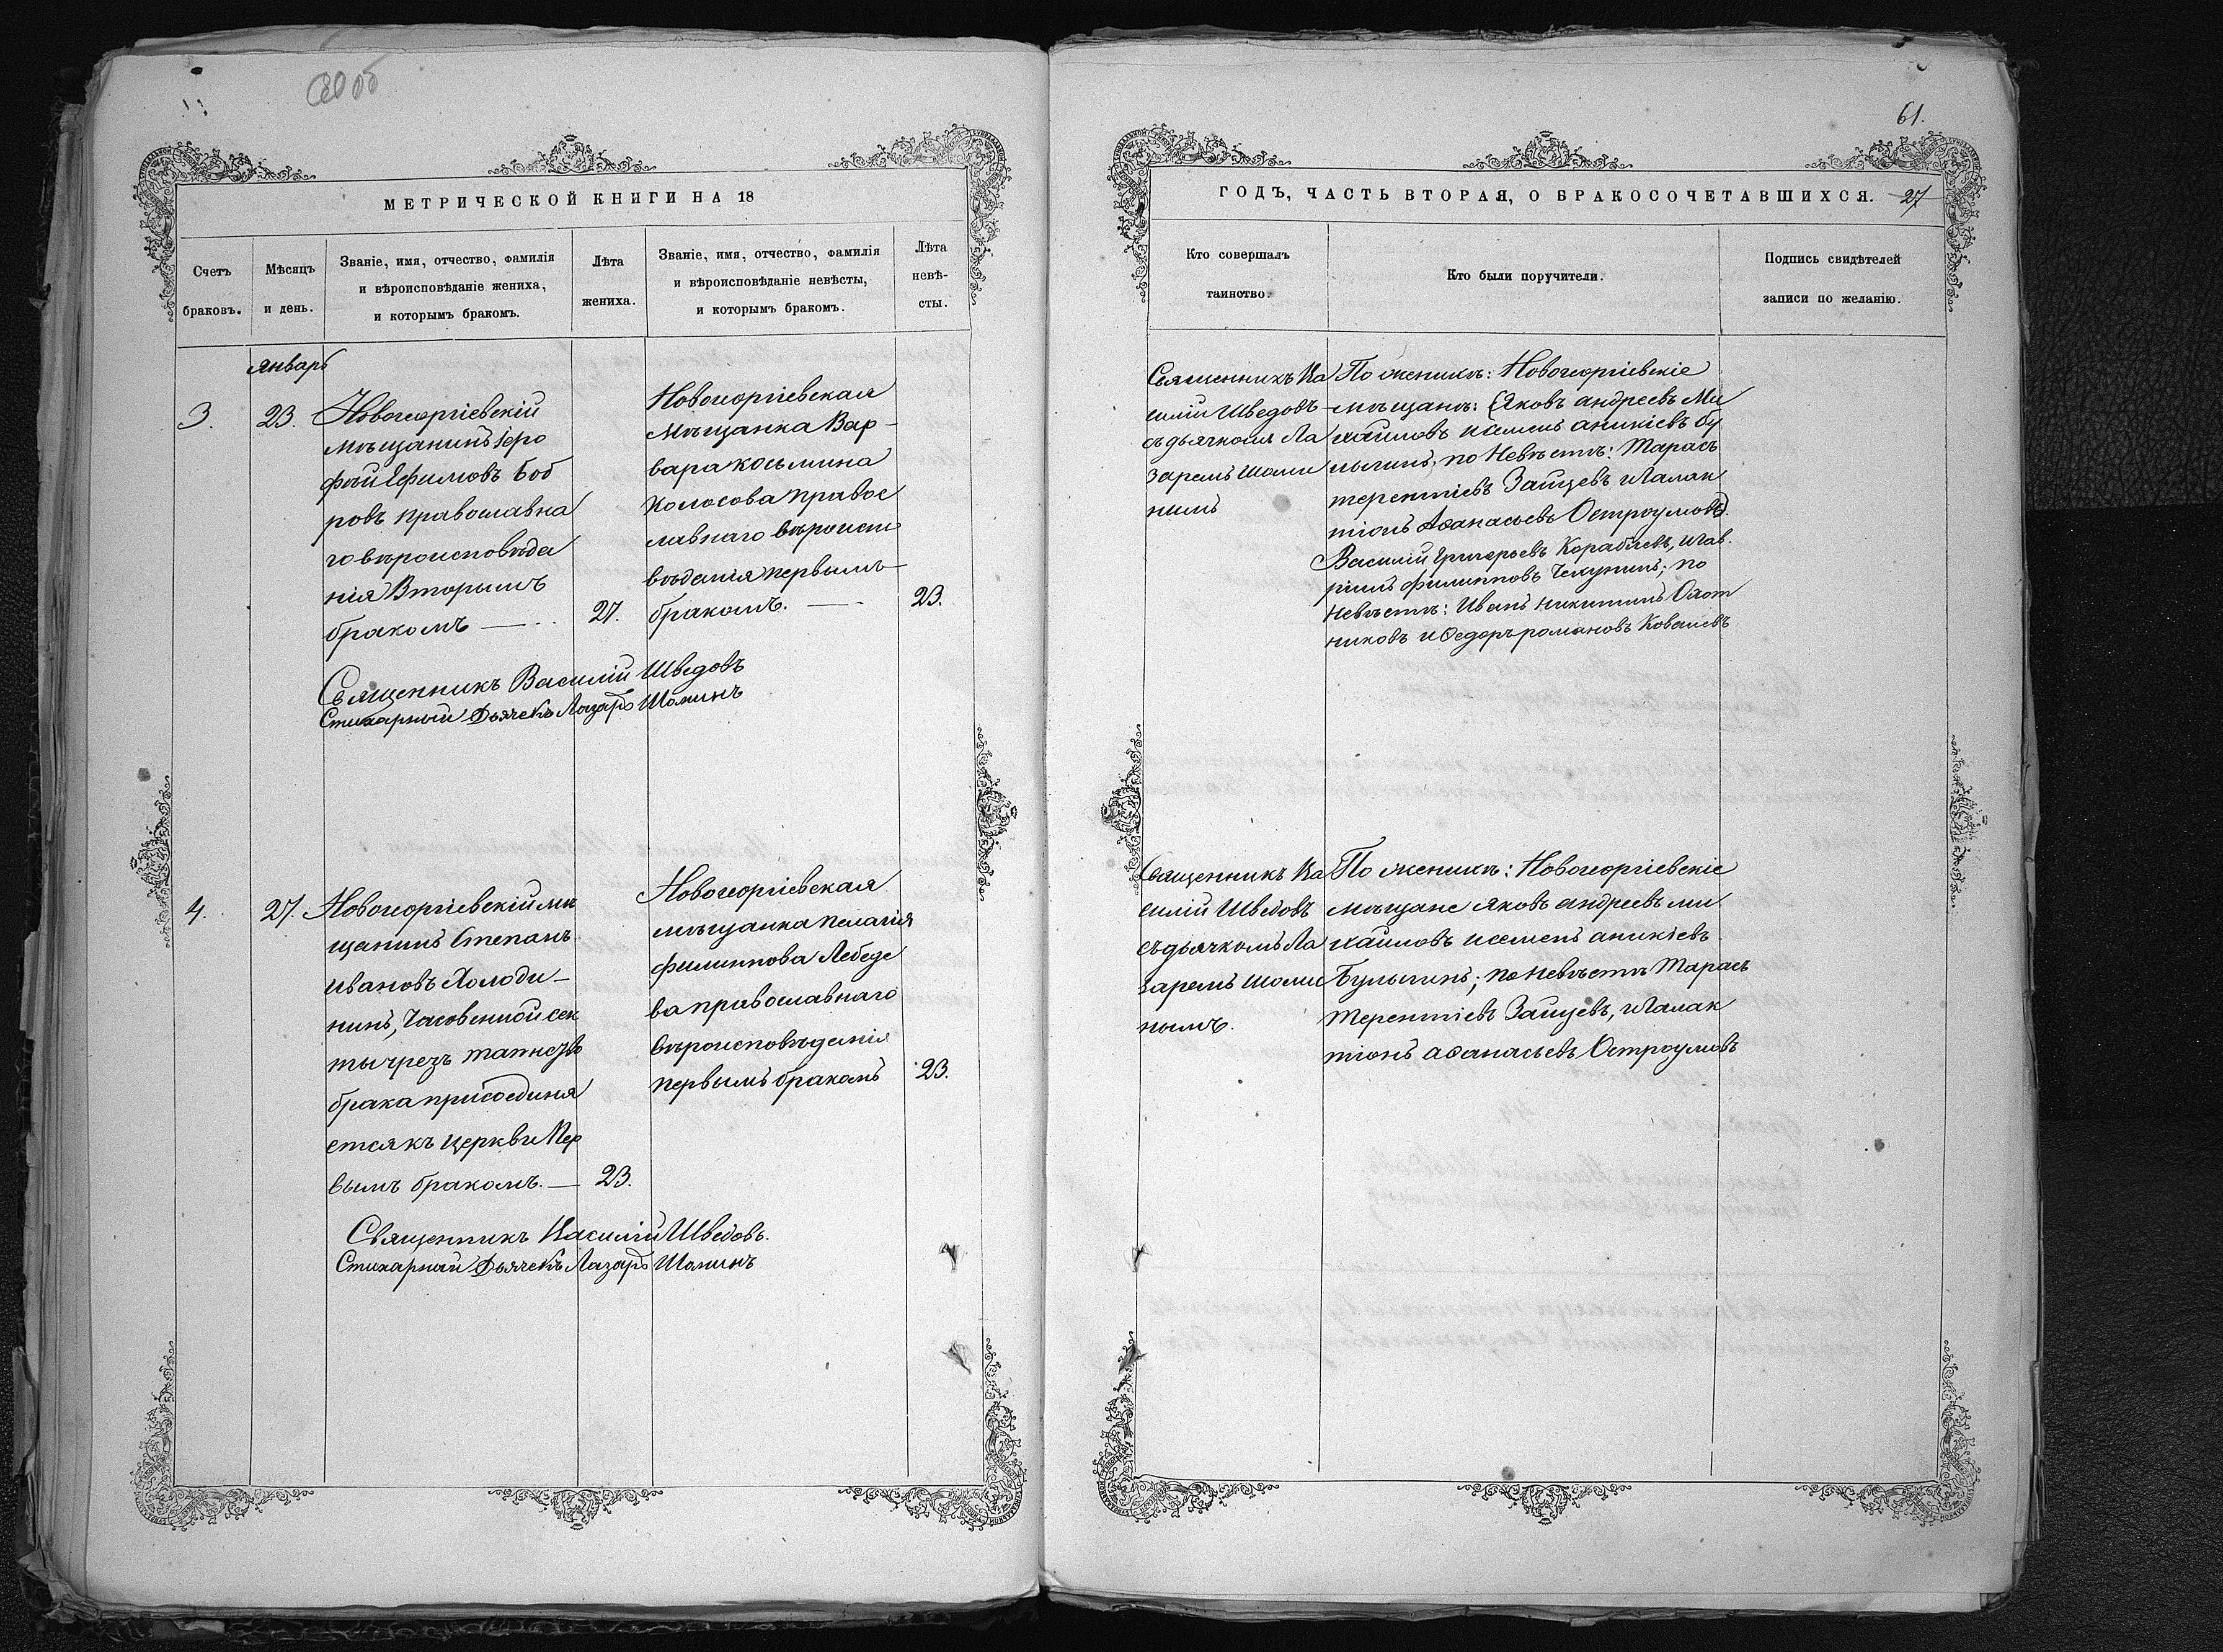 61.
МЕТРИЧЕСКОЙ КНИГИ НА 18
Счетъ
браковъ.
Мѣсяцъ
и день.
Званіе, имя, отчество, фамилія
и вѣроисповѣданіе жениха,
и которымъ бракомъ.
Лѣта
жениха.
Званіе, имя, отчество, фамилія
и вѣроисповѣданіе невѣсты,
и которымъ бракомъ.
Лѣта
невѣ-
сты.
Январь
3.
23.
Новогеоргіевскій
мѣщанинъ Іеро
фѣй Ефимовъ Боб
ровъ православна
го вѣроисповѣда
нія Вторымъ
бракомъ
27.
Новогеоргіевская
мѣщанка Вар-
вара Косьмина
Колосова правос
лавнаго вѣроиспо
вѣданія первымъ
бракомъ.
23.
Священникъ Василій Шведовъ
Стихарный Дьячекъ Лазарь Шоминъ
4.
27.
Новогеоргіевскій мѣ
щанинъ Степанъ
Ивановъ Холоди-
нинъ, Часовенной сек
ты чрезъ таинство
брака присоединя
ется къ церкви Пер
вымъ бракомъ.
23.
Новогеоргіевская
мѣщанка Пелагія
Филиппова Лебеде
ва православнаго
вѣроисповѣданія
первымъ бракомъ
23.
Священникъ Василій Шведовъ.
Стихарный Дьячекъ Лазарь Шоминъ
ГОДЪ, ЧАСТЬ ВТОРАЯ, О БРАКОСОЧЕТАВШИХСЯ.
27
Кто совершалъ
таинство.
Кто были поручители.
Подпись свидѣтелей
записи по желанію.
Священникъ Ва
силій Шведовъ
съ дьячкомъ Ла
заремъ Шоми
нымъ
По женихѣ: Новогеоргіевскіе
мѣщане: (Яковъ Андреевъ Ми
хайловъ и Семенъ Аникіевъ Бу
лыгинъ, по Невѣстѣ: Тарасъ
Терентіевъ Зайцевъ и Галак
тіонъ Аѳанасьевъ Остроумовъ).
Василій Григорьевъ Карабаевъ, и Гав.
ріилъ Филипповъ Чекунинъ; по
Невѣстѣ: Иванъ Никитинъ Охот
никовъ и Ѳедоръ Романовъ Ковалевъ
Священникъ Ва
силій Шведовъ
съ дьячкомъ Ла
заремъ Шоми
нымъ.
По женихѣ: Новогеоргіевскіе
мѣщане Яковъ Андреевъ Ми
хайловъ и Семенъ Аникіевъ
Булыгинъ; по Невѣстѣ Тарасъ
Терентіевъ Зайцевъ, и Галак
тіонъ Аѳанасьевъ Остроумовъ